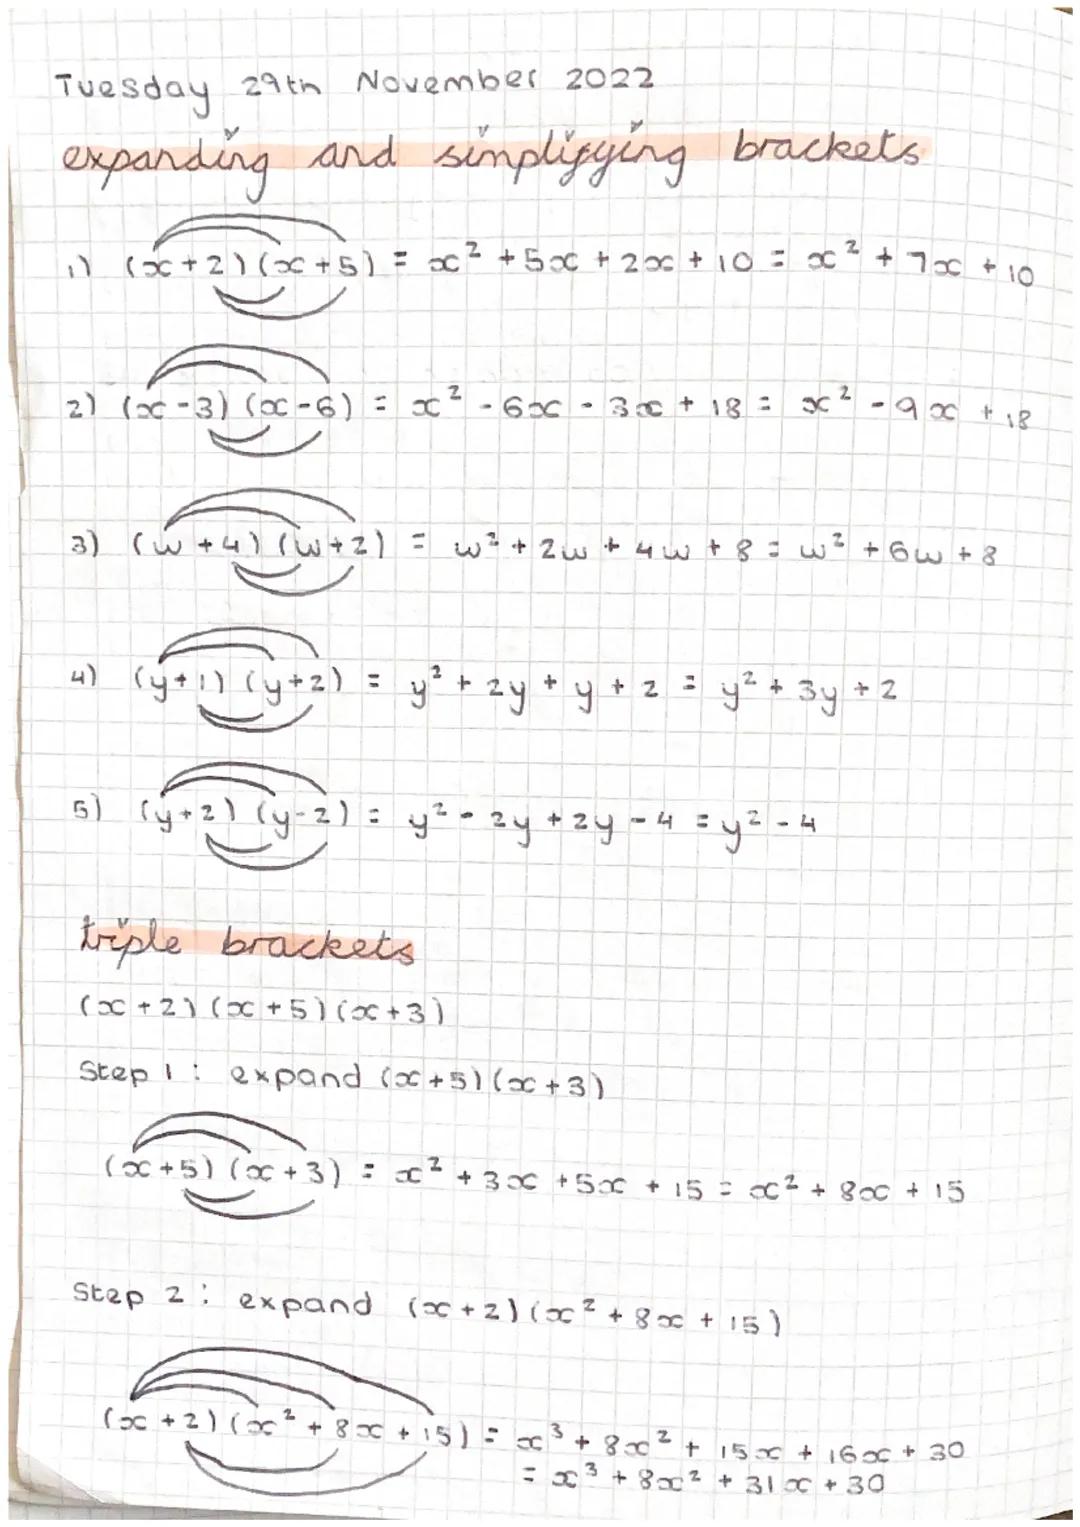 Tuesday 29th November 2022
expanding and simplifying brackets
1) (x+2)(x+5) = x² + 5x + 2x + 10 = x² + 7x + 10
2) (x-3)(x-6) = x² - 6x - 3x + 18 = x² - 9x + 18
3) (w+4)(w+2) = w² + 2w + 4w + 8 = w² + 6w + 8
4) (y+1)(y+2) = y² + 2y + y + 2 = y² + 3y + 2
5) (y+2)(y-2) = y² - 2y + 2y - 4 = y² - 4
triple brackets
(x+2)(x+5)(x+3)
Step 1: expand (x+5)(x+3)
(x+5)(x+3) = x² + 3x + 5x + 15 = x² + 8x + 15
Step 2: expand (x+2)(x² + 8x + 15)
(x+2)(x² + 8x + 15) = x³ + 8x² + 15x + 16x + 30
= x³ + 8x² + 31x + 30